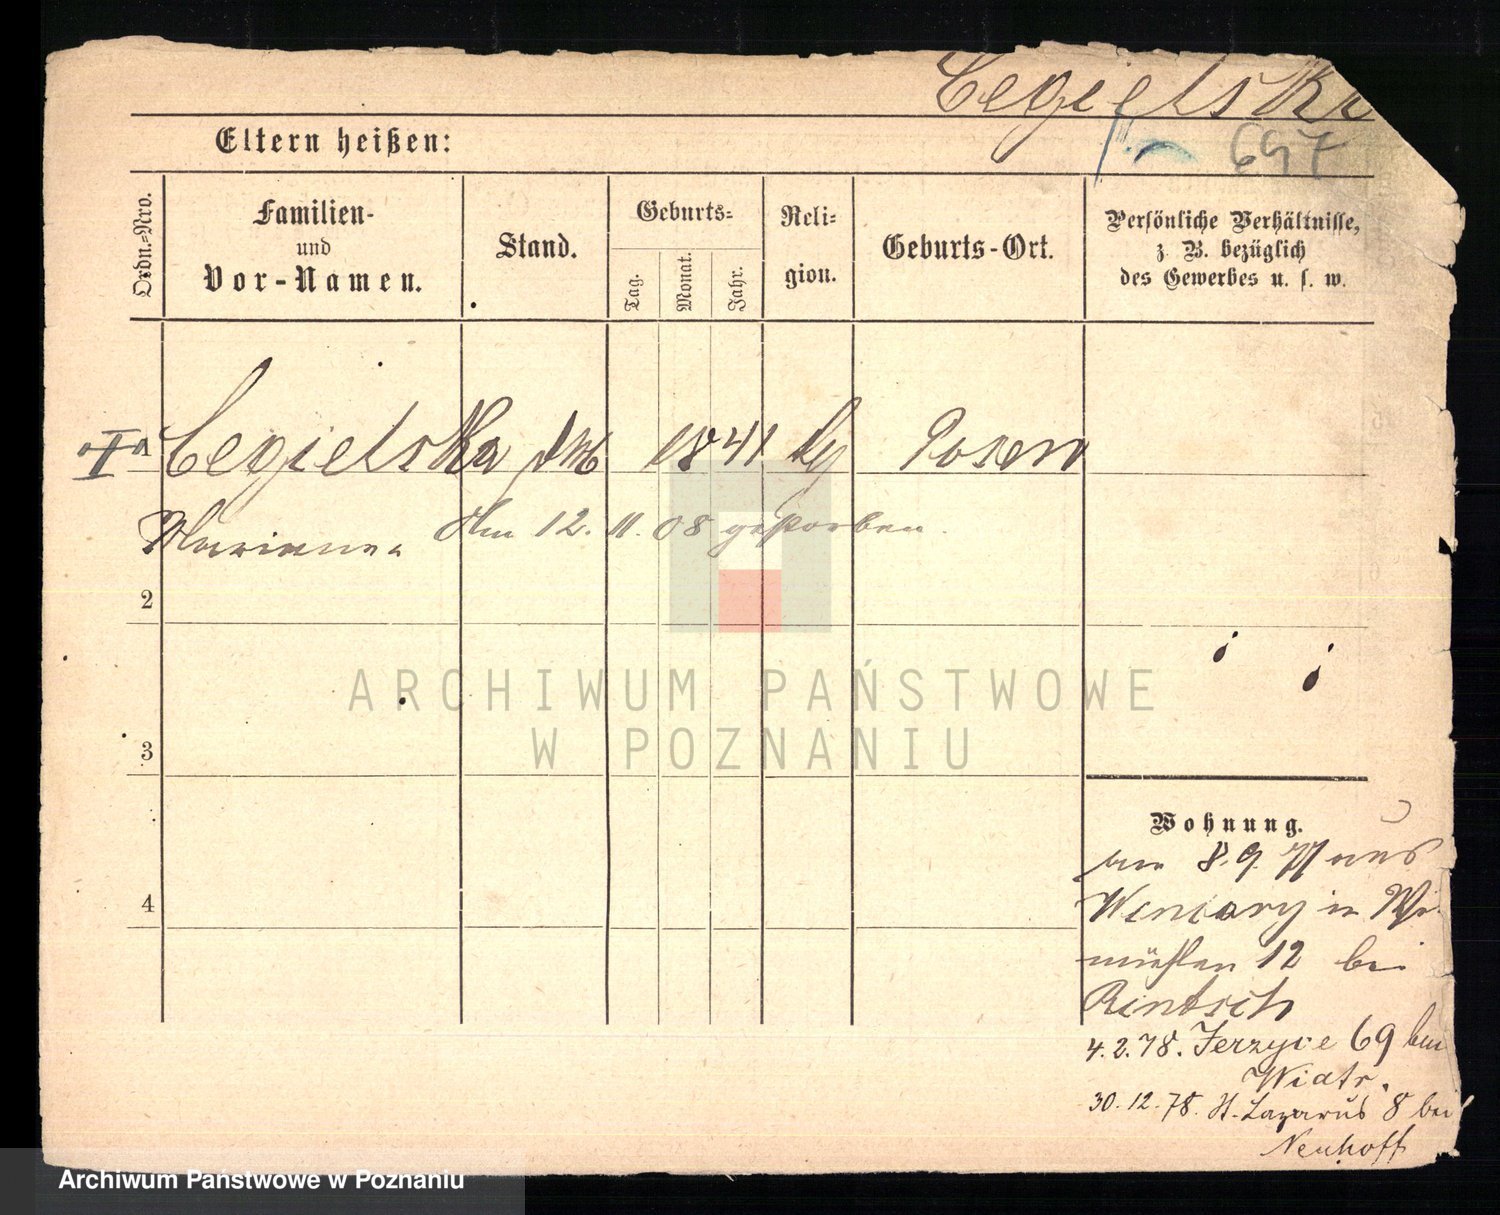 Cegielska
697
Eltern heißen:
Ordn.=Nro.
Familien-
und
Vor-Namen.
Stand.
Geburts=
Tag.
Monat.
Jahr.
Reli=
gion.
Geburts-Ort.
Persönliche Verhältnisse,
z. B. bezüglich
des Gewerbes u. s. w.
Cegielska 1841 Posen
Marianna Am 12. 11. 08 gestorben.
2
3
4
Wohnung.
am 8. 9. 77 aus
Winiary in
mühlen 12 bei
Rintsch
4. 2. 78. Jerzyce 69 bei
Wiatr.
30. 12. 78. St. Lazarus 8 bei
Neuhoff
ARCHIWUM PAŃSTWOWE
W POZNANIU
Archiwum Państwowe w Poznaniu